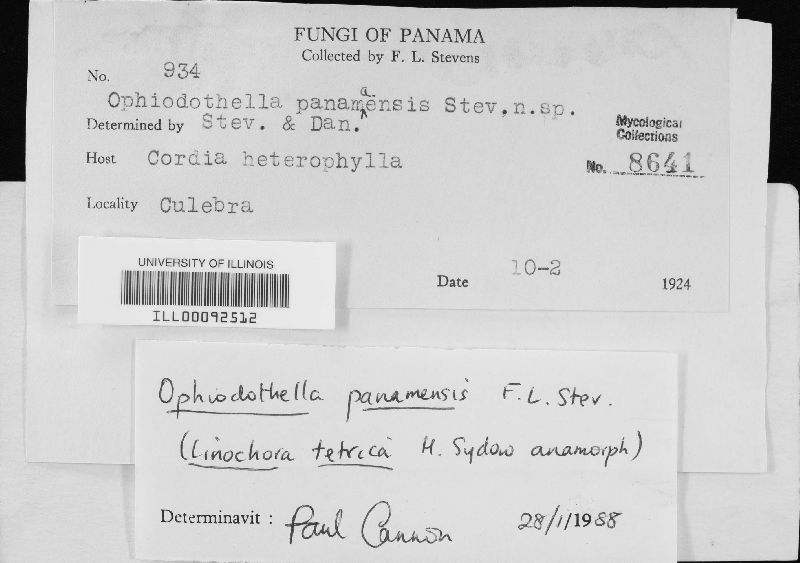 FUNGI OF PANAMA
Collected by F. L. Stevens
No. 934
Ophiodothella panamaensis Stev. n. sp.
Determined by Stev. & Dan.
Mycological
Collections
Host Cordia heterophylla
No. 8641
Locality Culebra
UNIVERSITY OF ILLINOIS
ILL00092512
Date 10-2 1924
Ophiodothella panamensis F. L. Stev.
(Linochora tetrica H. Sydow anamorph)
Determinavit : Paul Cannon 28/1/1988